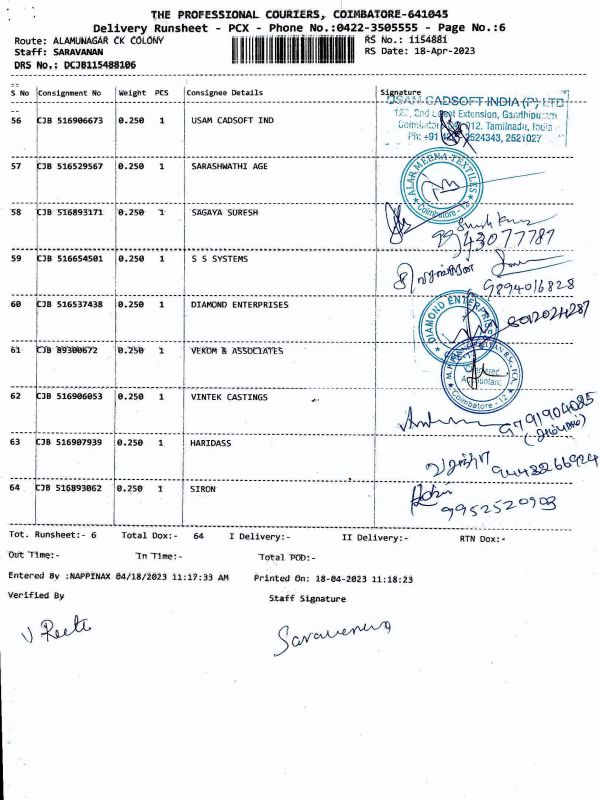 THE PROFESSIONAL COURIERS, COIMBATORE-641045
Delivery Runsheet - PCX - Phone No.:0422-3505555 - Page No.:6
Route: ALAMUNAGAR CK COLONY
RS No.: 1154881
Staff: SARAVANAN
RS Date: 18-Apr-2023
DRS No.: DCJB115488106
S No Consignment No Weight PCS Consignee Details Signature
56 CJB 516906673 0.250 1 USAM CADSOFT IND
USAM CADSOFT INDIA (P) LTD
Extension, Gandhipuram
012. Tamilnadu, India
2524343, 2521027
57 CJB 516529567 0.250 1 SARASHWATHI AGE
ALAR MEENA TEXTILES
Coimbatore - 12
58 CJB 516893171 0.250 1 SAGAYA SURESH
9943077787
59 CJB 516654501 0.250 1 S S SYSTEMS
9894016828
60 CJB 516537438 0.250 1 DIAMOND ENTERPRISES
DIAMOND ENTERPRISES
61 CJB 89300672 0.250 1 VEKOM & ASSOCIATES
Coimbatore - 12
62 CJB 516906053 0.250 1 VINTEK CASTINGS
9791904085
63 CJB 516907939 0.250 1 HARIDASS
9443266924
64 CJB 516893062 0.250 1 SIRON
9952520903
Tot. Runsheet:- 6 Total Dox:- 64 I Delivery:- II Delivery:- RTN Dox:-
Out Time:- In Time:- Total POD:-
Entered By :NAPPINAX 04/18/2023 11:17:33 AM Printed On: 18-04-2023 11:18:23
Verified By Staff Signature